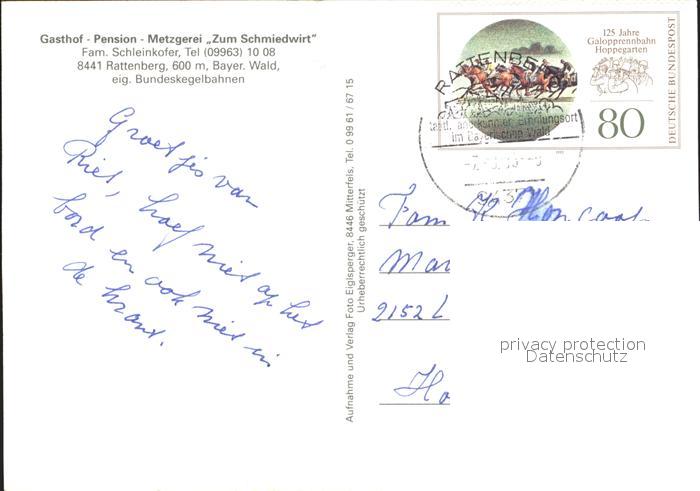 Gasthof - Pension - Metzgerei „Zum Schmiedwirt"
Fam. Schleinkofer, Tel (09963) 10 08
8441 Rattenberg, 600 m, Bayer. Wald,
eig. Bundeskegelbahnen
Groetjes van
Riet, hoef niet op het
bord en ook niet in
de krant.
Aufnahme und Verlag Foto Eiglsperger, 8446 Mitterfels, Tel. 0 99 61 / 67 15
Urheberrechtlich geschützt
125 Jahre
Galopprennbahn
Hoppegarten
80
DEUTSCHE BUNDESPOST
RATTENBERG
staatl. anerkannter Erholungsort
im Bayerischen Wald
Fam
Mar
2152 L
Ho
privacy protection
Datenschutz